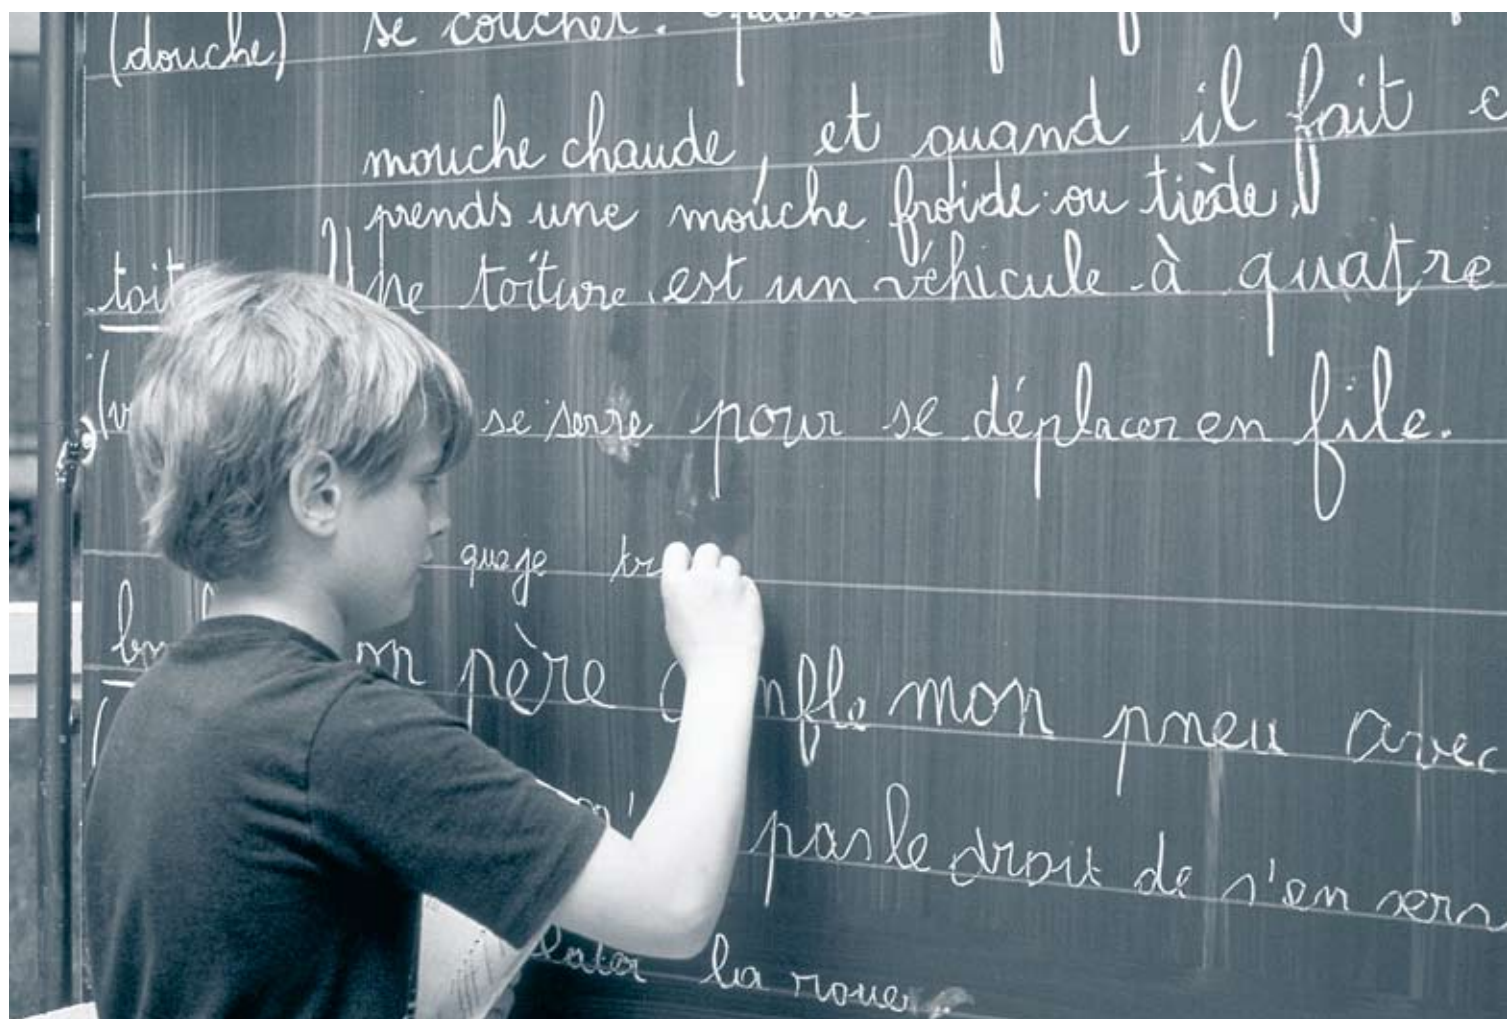 (douche) se coucher. Quand
mouche chaude, et quand il fait
prends une mouche froide ou tiède.
toit Une toiture est un véhicule à quatre
se serre pour se déplacer en file.
que je
père mon pneu avec
pas le droit de s'en
la roue.